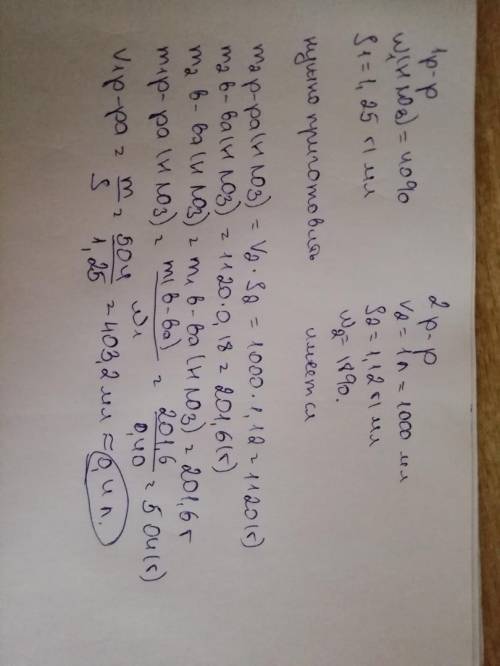 1р-р
W₁(HNO3) = 40%
ρ1 = 1,25 г/мл
нужно приготовить
2 р-р
V2 = 1л = 1000 мл
ρ2 = 1,12 г/мл
W2 = 18%.
имеется
m2 р-ра(HNO3) = V2 · ρ2 = 1000 · 1,12 = 1120(г)
m2 в-ва(HNO3) = 1120 · 0,18 = 201,6(г)
m2 в-ва(HNO3) = m1 в-ва(HNO3) = 201,6 г
m1 р-ра (HNO3) = m1 в-ва) / W1 = 201,6 / 0,40 = 504(г)
V1 р-ра = m / ρ = 504 / 1,25 = 403,2 мл ≈ 0,4 л.